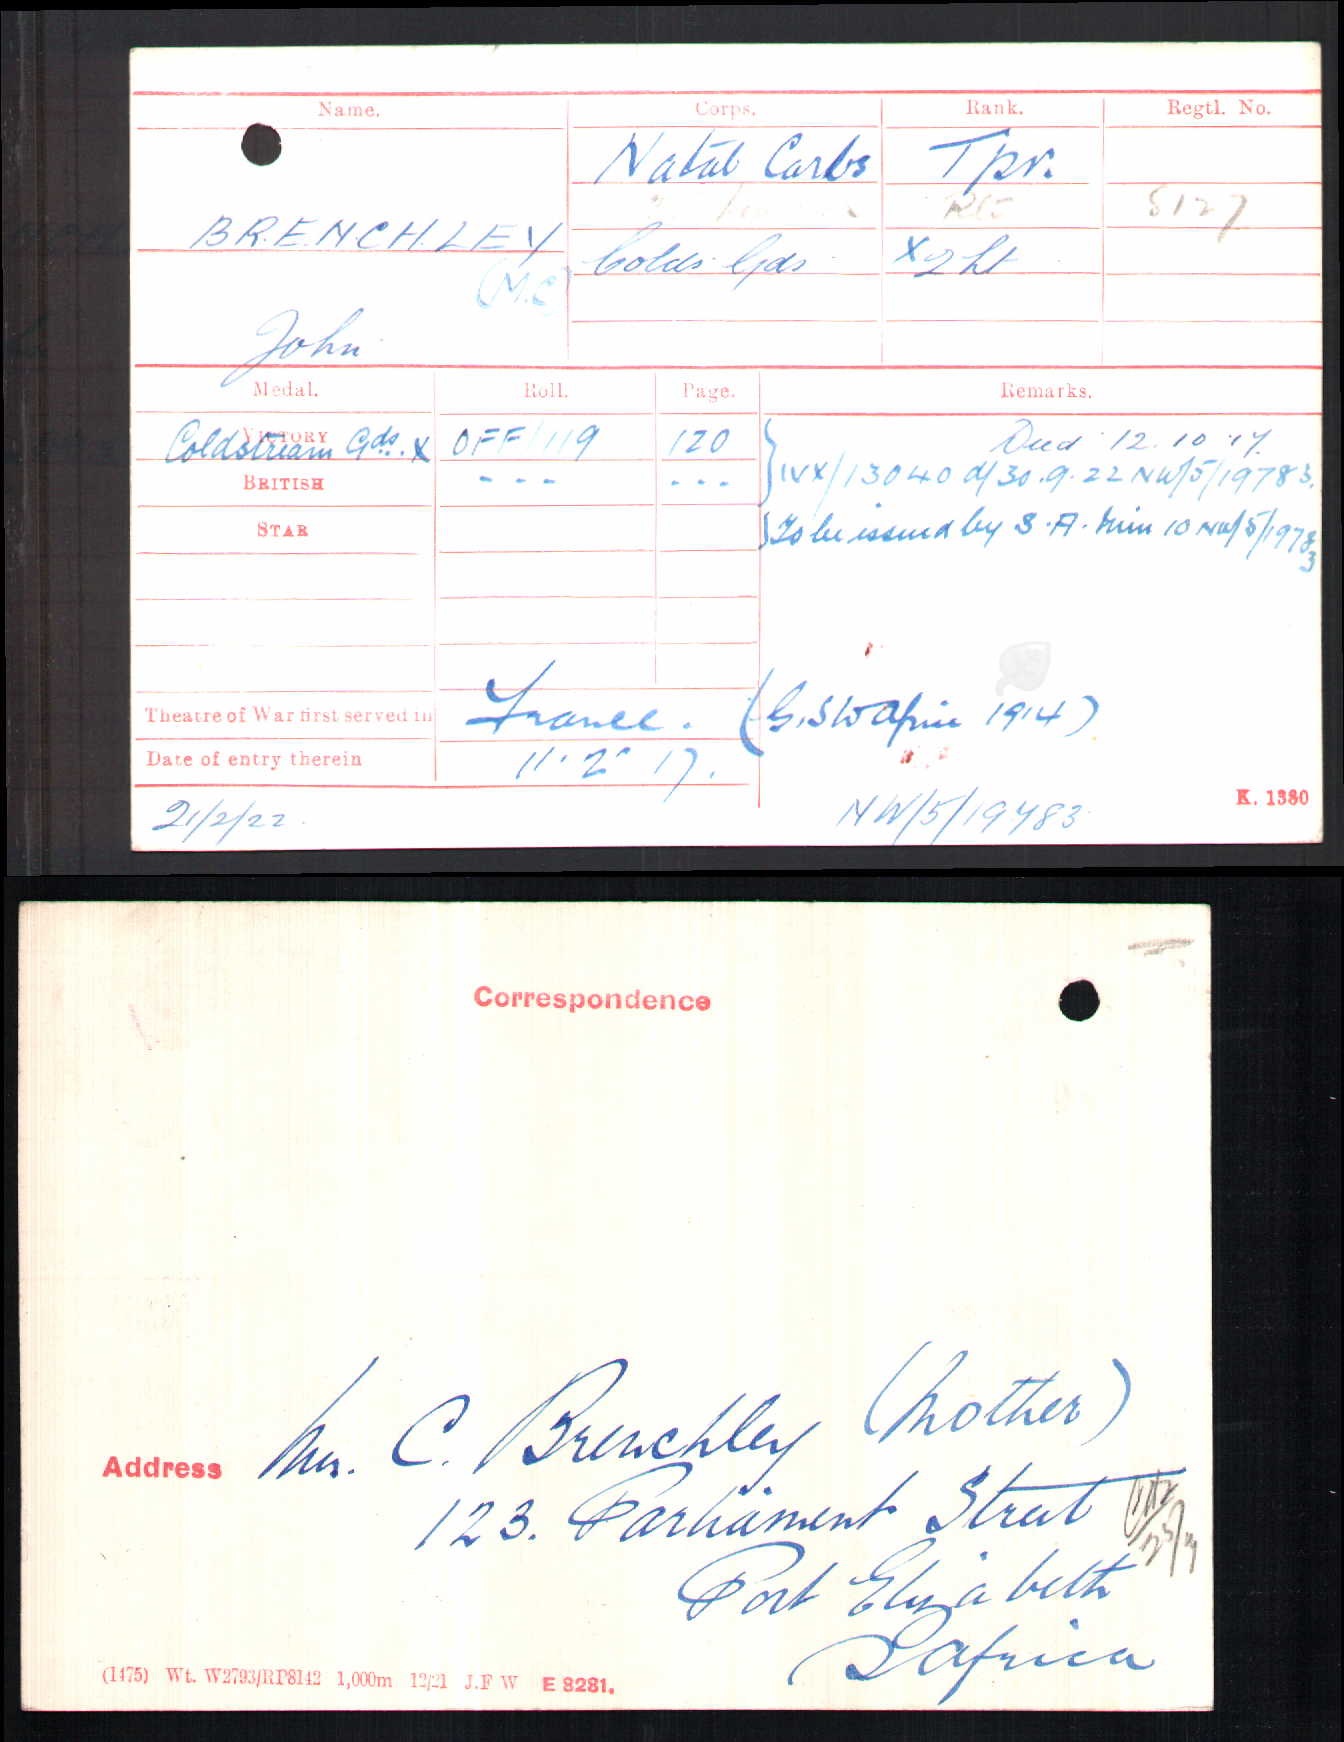 Name. Corps. Rank. Regtl. No.
Natal Carbs Tpr.
Rfc 5127
BRENCHLEY
Colds Gds X 2 Lt
(M.C)
John
Medal. Roll. Page. Remarks.
VICTORY Coldstream Gds. X OFF/119 120 Died 12.10.17.
BRITISH - - - - - - IVX/13040 d/30.9.22 NW/5/19783.
STAR To be issued by S.A. Min 10 NW/5/19783
Theatre of War first served in France. (G.SW Africa 1914)
Date of entry therein 11.2.17.
K. 1380
21/2/22. NW/5/19783
Correspondence
Address Mrs. C. Brenchley (Mother)
123. Parliament Street
Port Elizabeth
S Africa
(1475) Wt. W2793/RP8142 1,000m 12/21 J.F W E 8281.